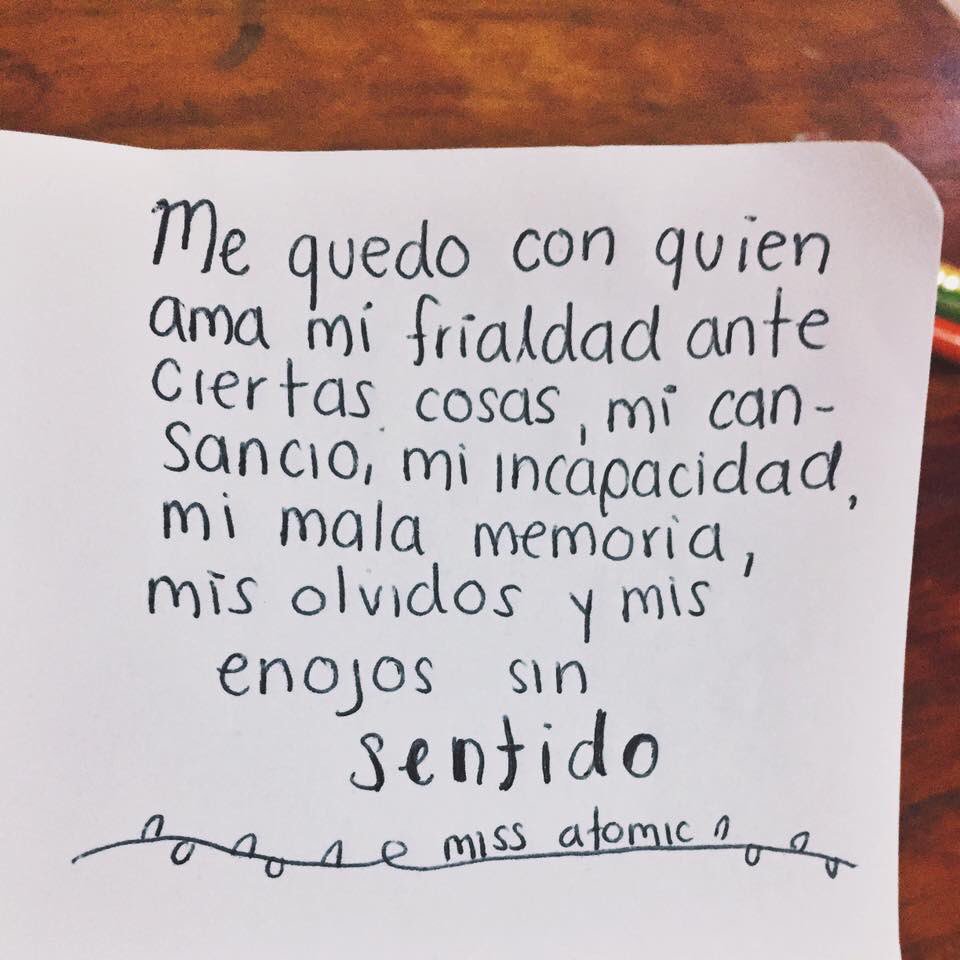 Me quedo con quien
ama mi frialdad ante
ciertas cosas, mi can-
sancio, mi incapacidad,
mi mala memoria,
mis olvidos y mis
enojos sin
sentido
miss atomic